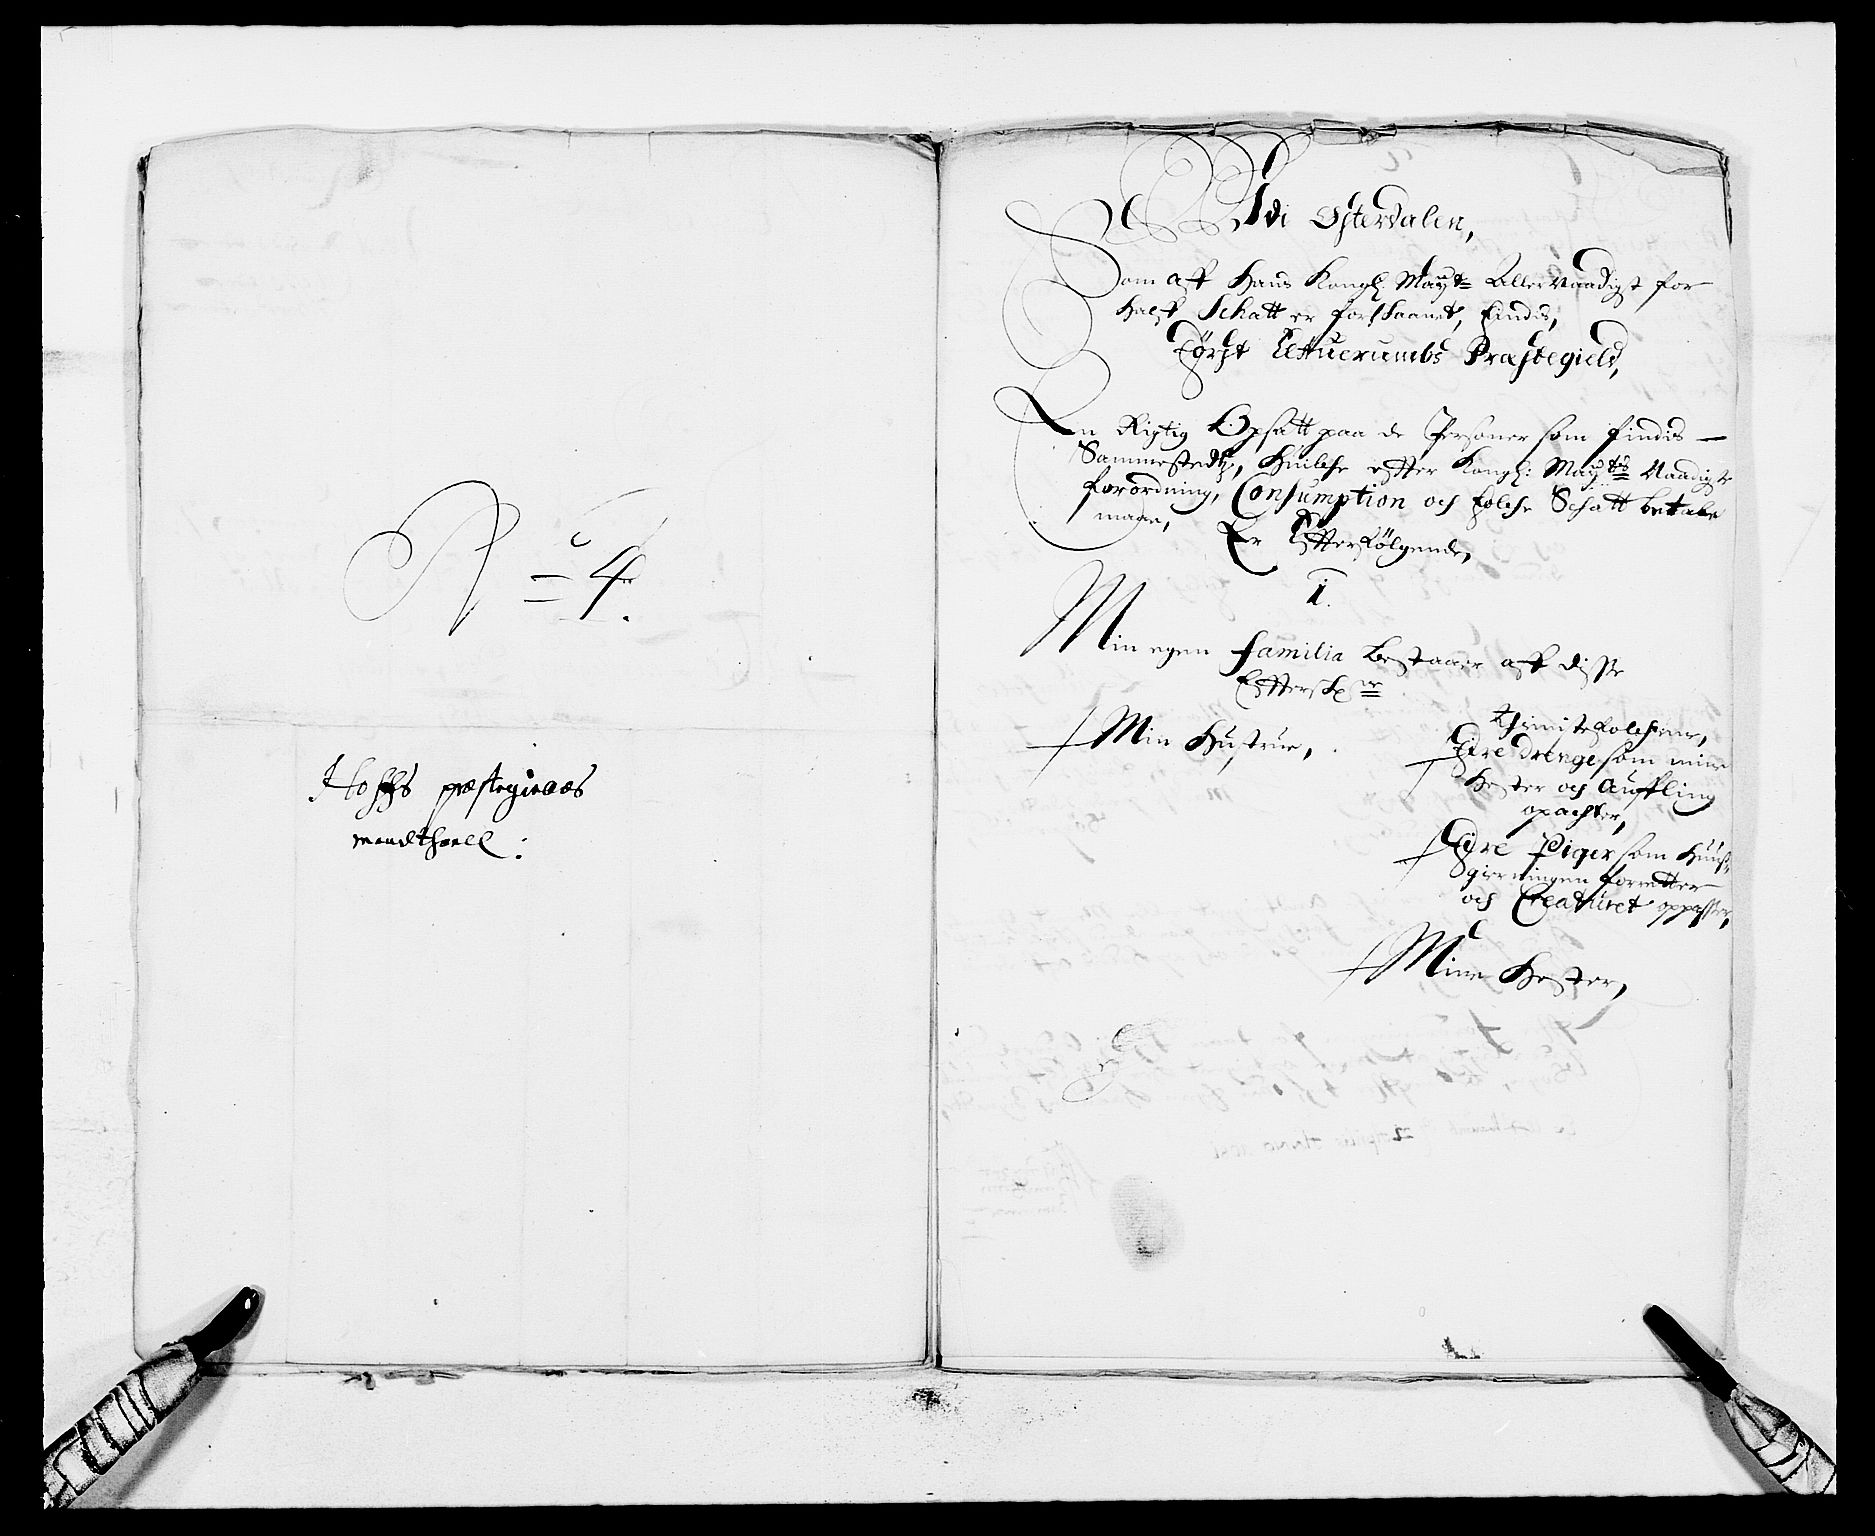 N = 4.
Hoffs præstegields
mandthaell:
Udi Østerdalen,
Som aff Hans Kongl Maytz Allernaadigst for
halff Schatt er forskaanet, findis,
Først Elffuerumbs Præstegield,
En Rigtig Opsatt paa de Personer som findis
Sammestedtz, huilche efter Kongl: Maytz Naadigste
forordning, Consumption och folche Schatt betale
maae,
Er Efterfølgende,
1.
Min egen familia Bestaaer aff disse
Efterskr
Min Hustrue,
Thienistefolchene,
Fire drenge som mine
Hester och Auffling
opachter,
Fire Piger som Huus
gierningen forretter
och Creaturet oppasser,
Mine Hester,